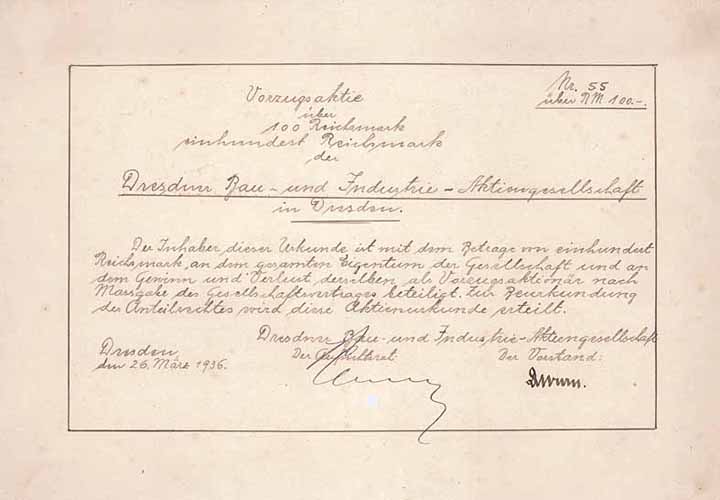 Nr. 55
über RM 100.-.
Vorzugsaktie
über
100 Reichsmark
einhundert Reichsmark
der
Dresdner Bau- und Industrie-Aktiengesellschaft
in Dresden.
Der Inhaber dieser Urkunde ist mit dem Betrage von einhundert
Reichsmark an dem gesamten Eigentum der Gesellschaft und an
dem Gewinn und Verlust derselben als Vorzugsaktionär nach
Massgabe des Gesellschaftsvertrages beteiligt. Zur Beurkundung
des Anteilrechtes wird diese Aktienurkunde erteilt.
Dresdner Bau- und Industrie-Aktiengesellschaft
Dresden,
den 26. März 1936.
Der Aufsichtsrat
Der Vorstand: